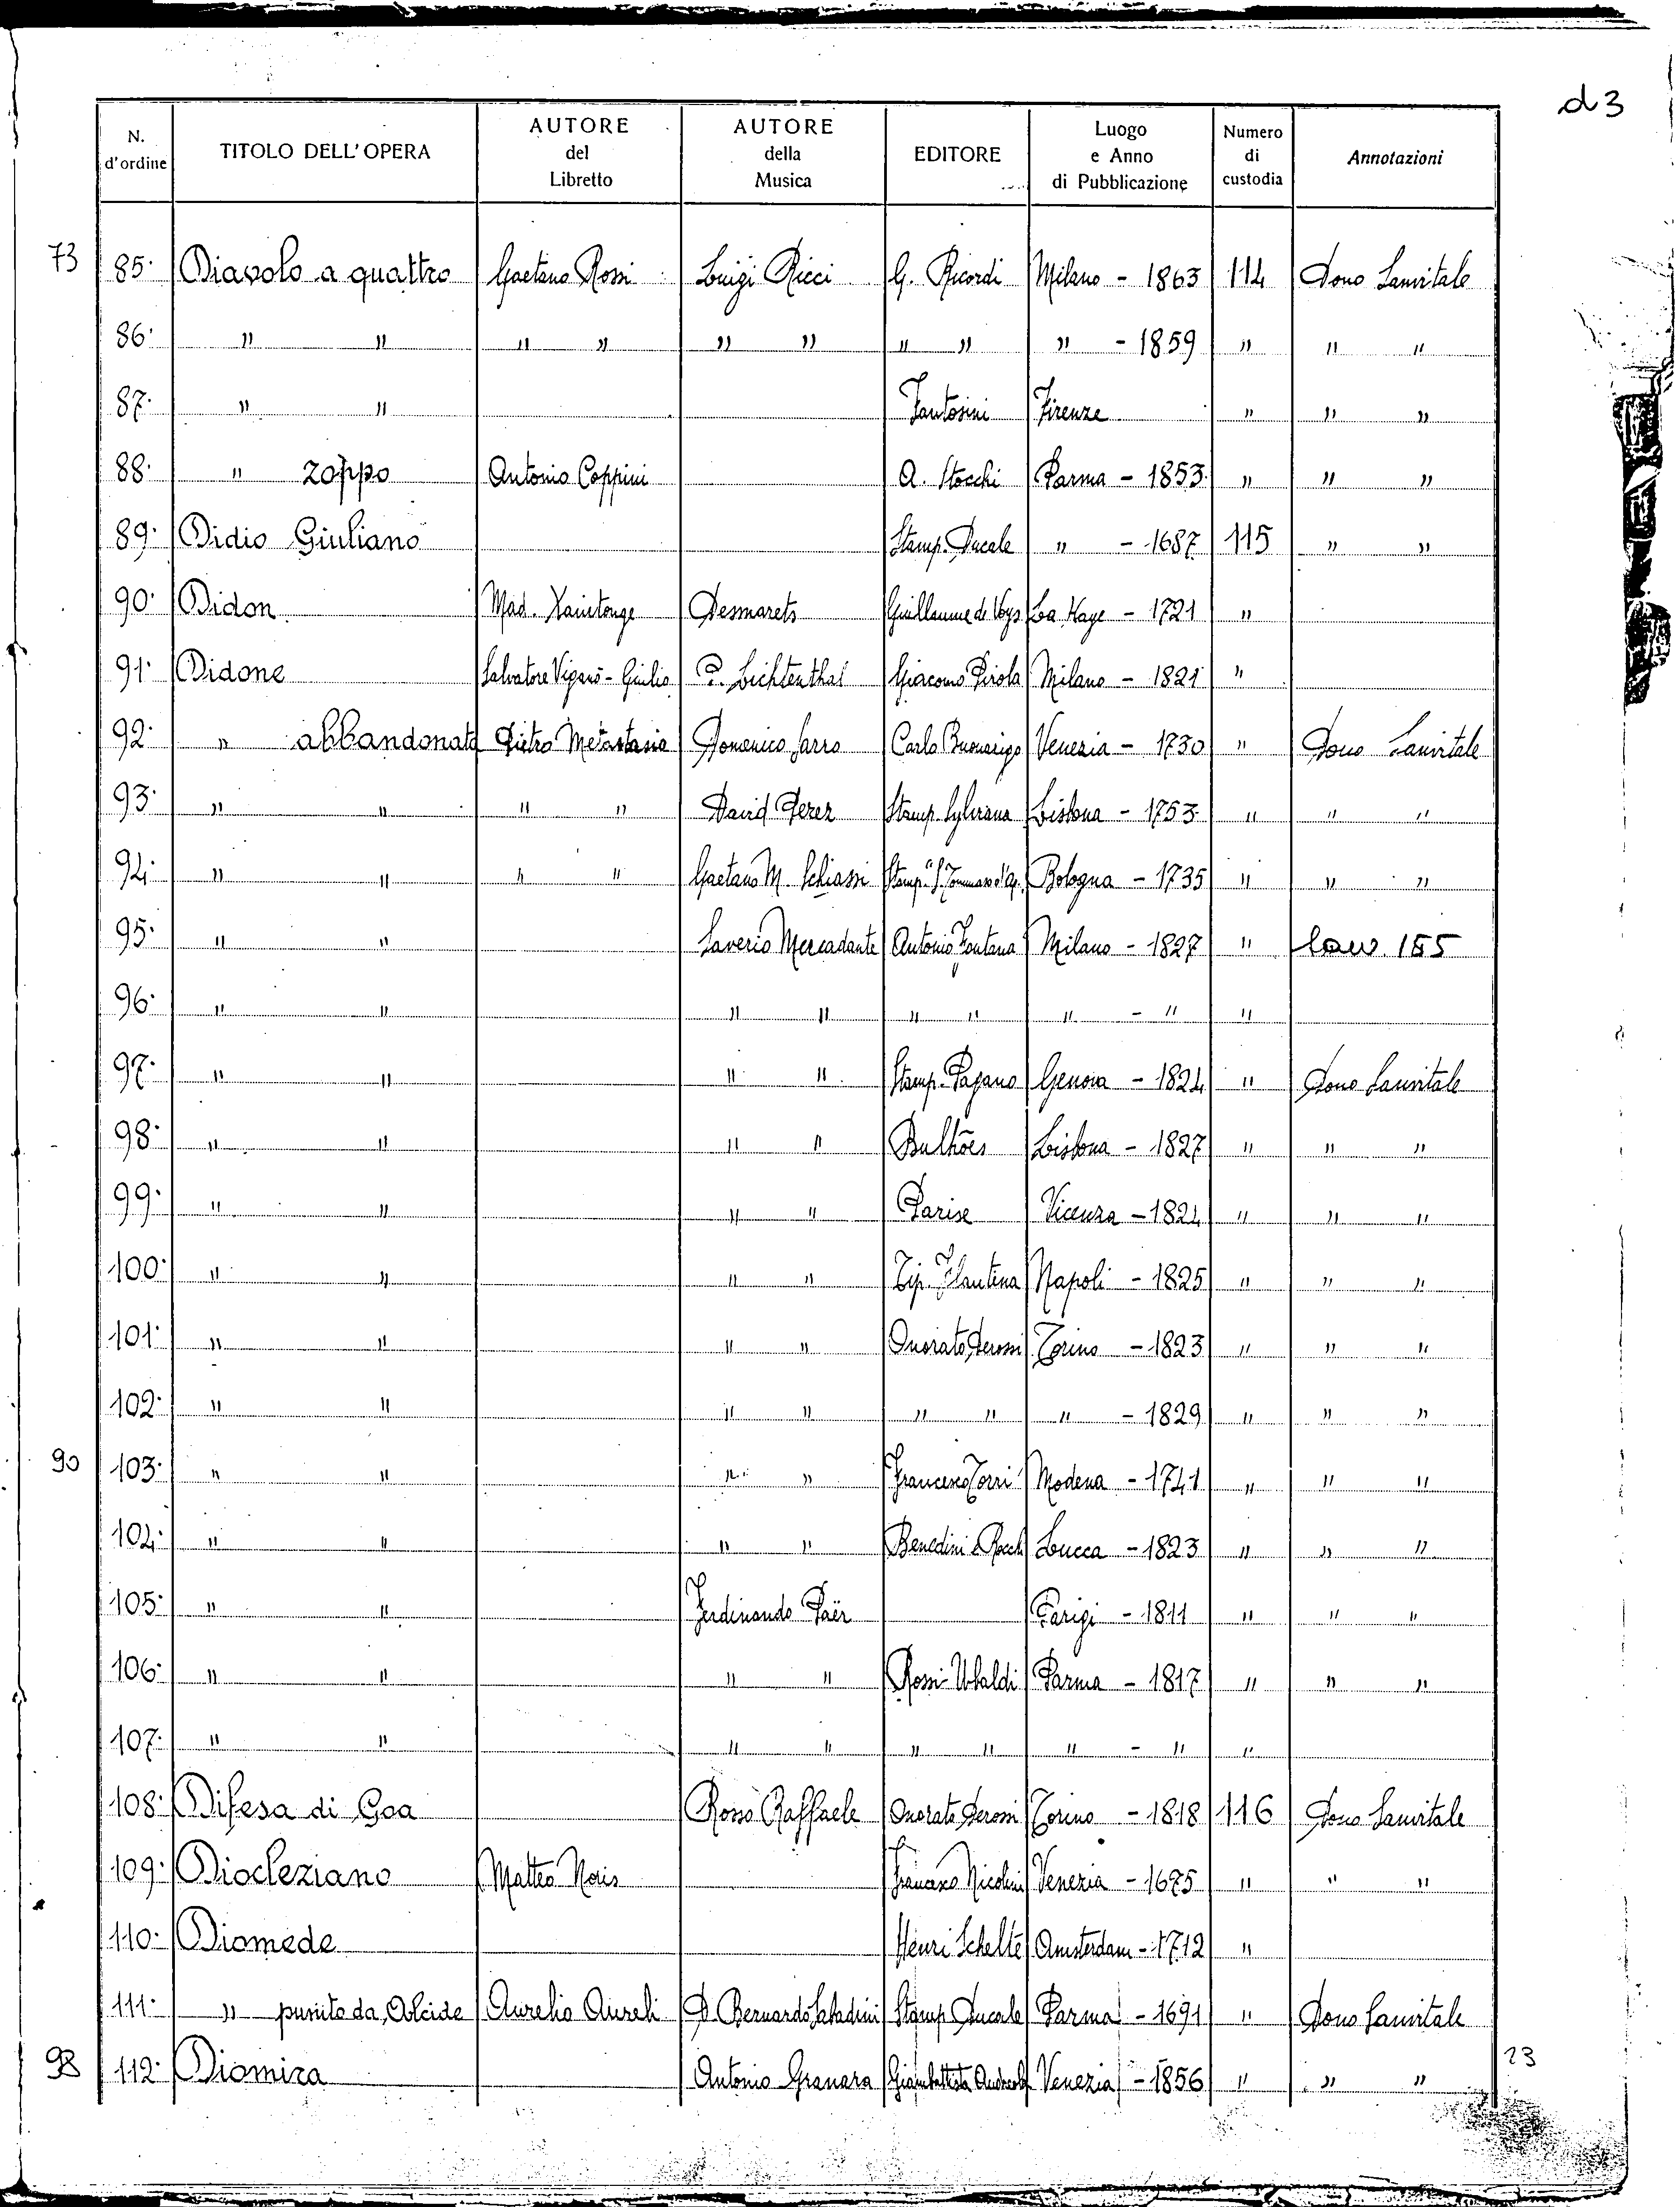 d3
N. d'ordine | TITOLO DELL'OPERA | AUTORE del Libretto | AUTORE della Musica | EDITORE | Luogo e Anno di Pubblicazione | Numero di custodia | Annotazioni
73 85. Diavolo a quattro Gaetano Rossi Luigi Ricci G. Ricordi Milano - 1863 114 Dono Sanvitale
86. " " " " " " " " " - 1859 " " "
87. " " Fantosini Firenze " " "
88. " zoppo Antonio Coppini A. Stocchi Parma - 1853. " " "
89. Didio Giuliano Stamp. Ducale " - 1687 115 " "
90. Didon Mad. Xaintonge Desmarets Guillaume de Voys La Haye - 1721 "
91. Didone Salvatore Viganò - Giulio P. Lichtenthal Giacomo Pirola Milano - 1821 "
92. " abbandonata Pietro Metastasio Domenico Sarro Carlo Buonarigo Venezia - 1730 " Dono Sanvitale
93. " " " " David Perez Stamp. Sylviana Lisbona - 1753 " " "
94. " " " " Gaetano M. Schiassi Stamp.a S. Tommaso d'Aq. Bologna - 1735 " " "
95. " " Saverio Mercadante Antonio Fontana Milano - 1827 " 155
96. " " " " " " " - " "
97. " " " " Stamp. Pagano Genova - 1824 " Dono Sanvitale
98. " " " " Bulhões Lisbona - 1827 " " "
99. " " " " Parise Vicenza - 1824 " " "
100. " " " " Tip. Flautina Napoli - 1825 " " "
101. " " " " Onorato Derossi Torino - 1823 " " "
102. " " " " " " " - 1829 " " "
90 103. " " " " Francesco Torri Modena - 1741 " " "
104. " " " " Benedini e Rocchi Lucca - 1823 " " "
105. " " Ferdinando Paër Parigi - 1811 " " "
106. " " " " Rossi-Ubaldi Parma - 1817 " " "
107. " " " " " " " - " "
108. Difesa di Goa Rosso Raffaele Onorato Derossi Torino - 1818 116 Dono Sanvitale
109. Diocleziano Matteo Noris Francesco Nicolini Venezia - 1675 " " "
110. Diomede Henri Schelte Amsterdam - 1712 "
111. " punito da Alcide Aurelio Aureli D. Bernardo Sabadini Stamp. Ducale Parma - 1691 " Dono Sanvitale
98 112. Diomira Antonio Granara Giambattista Andreola Venezia - 1856 " " " 23